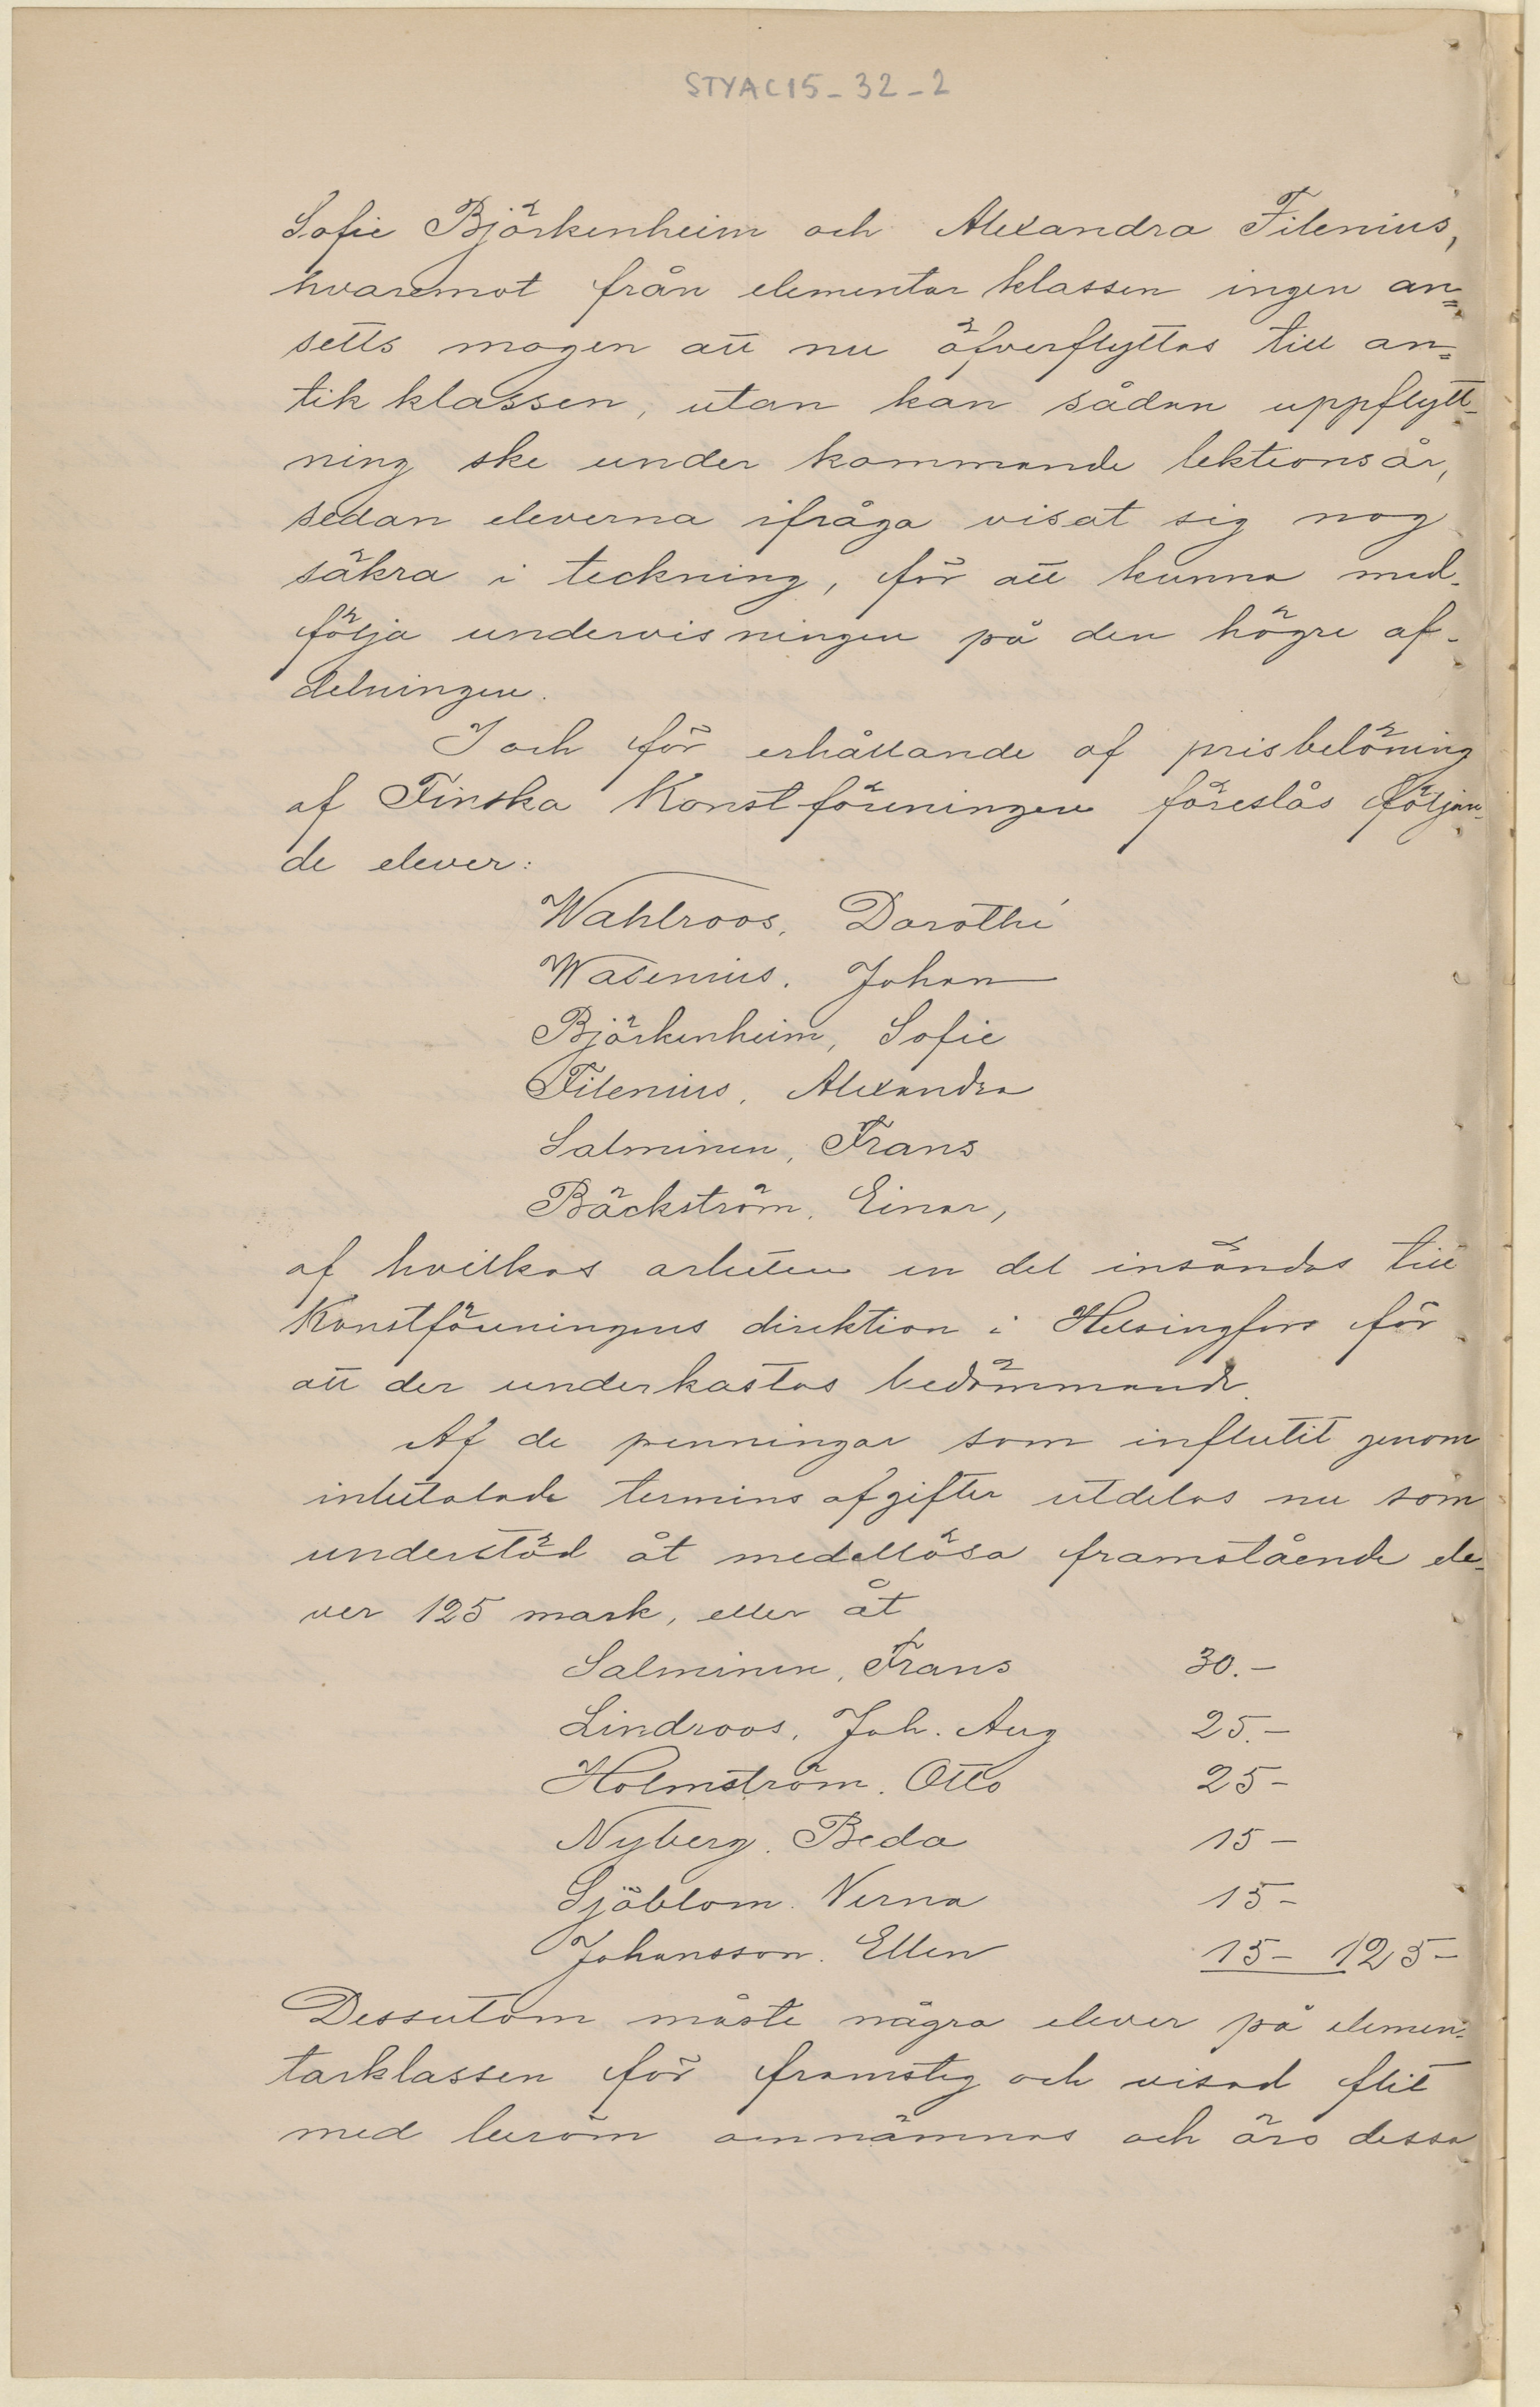 STYAC15-32-2
Sofie Björkenheim och Alexandra Filenius,
hvaremot från elementar klassen ingen an=
setts mogen att nu öfverflyttas till an=
tik klassen, utan kan sådan uppflytt-
ning ske under kommande lektionsår,
sedan eleverna ifråga visat sig nog
säkra i teckning, för att kunna med-
följa undervisningen på den högre af-
delningen.
I och för erhållande af prisbelöning
af Finska Konstföreningen föreslås följan-
de elever:
Wahlroos, Dorothé
Wasenius. Johan
Björkenheim, Sofie
Filenius, Alexandra
Salminen, Frans
Bäckström, Einar,
af hvilkas arbeten en del insändas till
Konstföreningens direktion i Helsingfors för
att der underkastas bedömmande.
Af de penningar som influtit genom
inbetalade termins afgifter utdelas nu som
understöd åt medellösa framstående ele-
ver 125 mark, eller åt
Salminen, Frans 30.-
Lindroos, Joh. Aug 25.-
Holmström. Otto 25-
Nyberg. Beda 15-
Sjöblom. Verna 15-
Johansson. Ellen 15- 125-
Dessutom måste några elever på elemen-
tarklassen för framsteg och visad flit
med beröm omnämnas och äro dessa